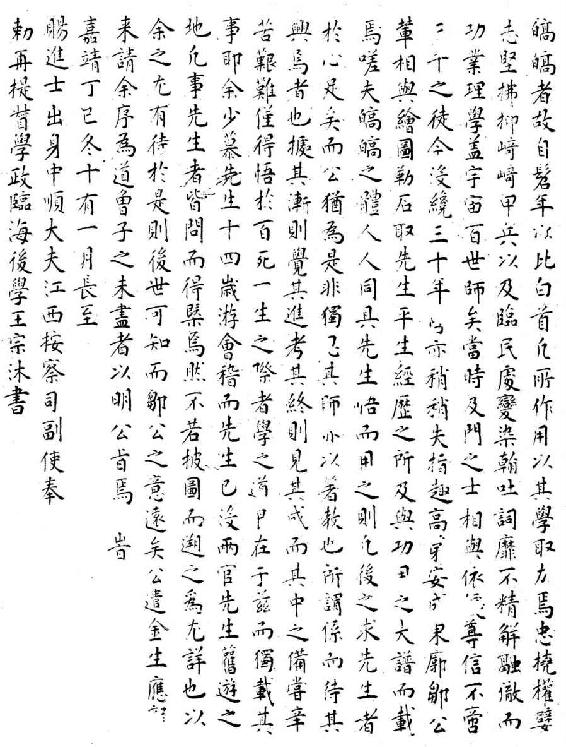 皜皜者故自髫年以比白首凡所作用以其學取力焉忠撓權孽
志堅拂抑崎崎甲兵以及臨民處變染翰吐詞靡不精解融徹而
功業理學蓋宇宙百世師矣當時及門之士相與依尊信不啻
三千之徒今沒纔三十年亦稍稍失指趣高穿安成東廓鄒公
輩相與繪圖勒石取先生平生經歷之所及與功用之大譜而載
焉嗟夫皜皜之體人人同具先生悟而用之則凡後之求先生者
於心足矣而公猶為是非獨其師亦以著教也所謂係而待其
興焉者也據其漸則覺其進考其終則見其成而其中之備嘗辛
苦艱難僅得悟於百死一生之際者學之道固在于茲而獨載其
事即余少慕先生十四歲游會稽而先生已沒兩官先生舊遊之
地凡事先生者皆問而得槩焉然不若披圖而遡之為尤詳也以
余之尤有待於是則後世可知而鄒公之意遠矣公遣金生應
來請余序為道曾子之未盡者以明公旨焉 旹
嘉靖丁巳冬十有一月長至
賜進士出身中順大夫江西按察司副使奉
勅再提督學政臨海後學王宗沐書